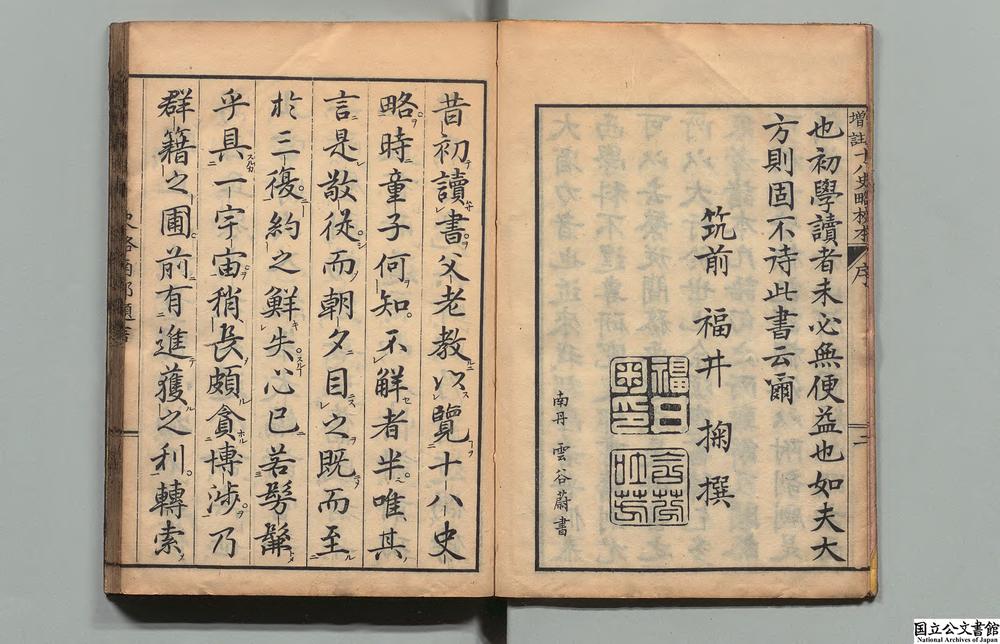 増註十八史略校本 序
也初學讀者未必無便益也如夫大
方則固不待此書云爾
筑前 福井 掬 撰
南丹 雲谷蔚書
二
昔初讀書父老教以覽十八史
略時童子何知不解者半唯其
言是敬従而朝夕目之既而至
於三復約之鮮失心已若髣髴
乎具一宇宙稍長頗貪博渉乃
群籍之圃前有進獲之利轉索
国立公文書館
National Archives of Japan